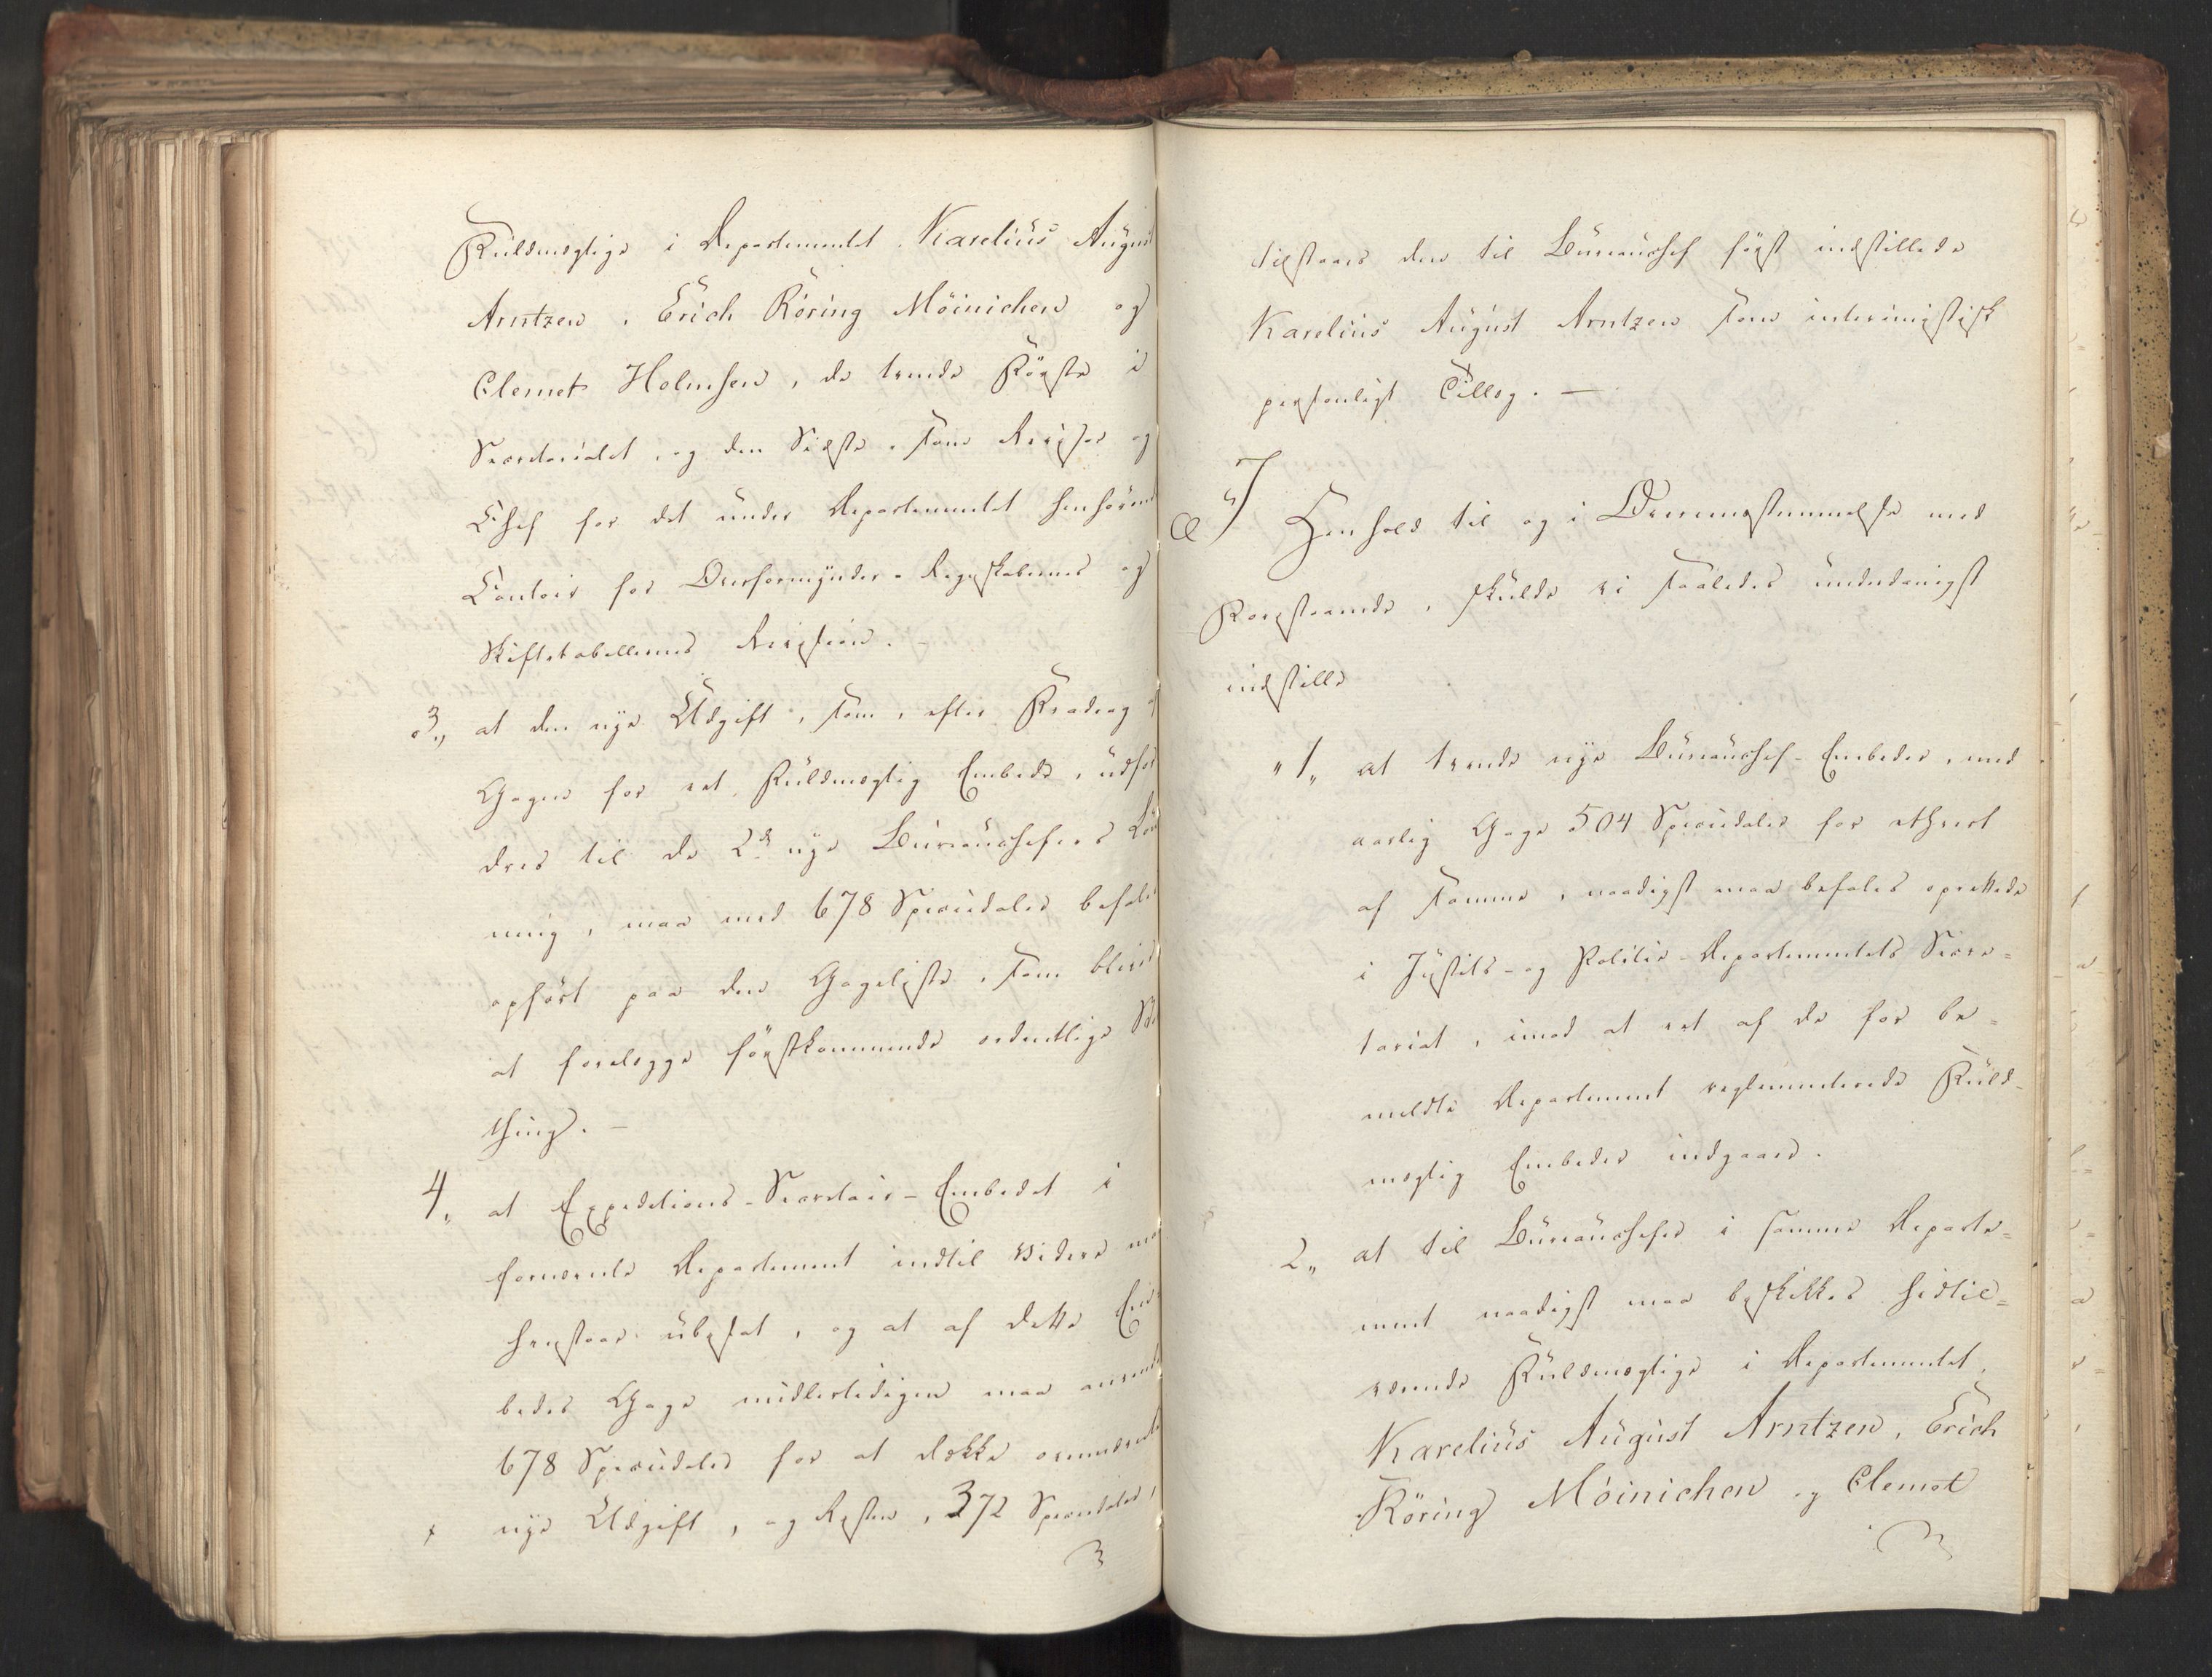 Fuldmægtige i Departementet Karelius August
Arntzen, Erich Röring Möinichen og
Clemet Holmsen, de tvende Förste i
Secretariatet, og den Sidste som Revisor og
Chef for det under Departementet henhörende
Contoir for Overformynder-Regnskabernes og
Skiftetabellernes Revision. –
3, at den nye Udgift, som, efter Fradrag af
Gagen for eet Fuldmægtig Embede, udfor
dres til de 2de nye Bureauchefers Løn
ning, maa med 678 Speciedaler befales
opfört paa den Gageliste, som bliver
at forelægge förstkommende ordentlige Stor
thing. –
4, at Expeditions-Secretair-Embedet i
fornævnte Departement indtil videre maa
henstaae ubesat, og at af dette Em
bedes Gage midlertidigen maa anvendes
678 Speciedaler for at dække ommeldte
nye Udgift, og Resten, 372 Speciedaler,
tilstaaes den til Bureauchef först indstillede
Karelius August Arntzen som interimistisk
personligt Tillæg. –
Henhold til og i Overeensstemmelse med
Forestaaende, skulde vi saaledes underdanigst
indstille
"1, at tvende nye Bureauchef-Embeder, med
aarlig Gage 504 Speciedaler for ethvert
af samme, naadigst maa befales oprettede
i Justits- og Politie-Departementets Secre=
tariat, imod at eet af de for be=
meldte Departement reglementerede Fuld-
mægtig Embeder indgaaer.
2, at til Bureauchefer i samme Departe=
ment naadigst maa beskikkes hidtil=
værende Fuldmægtige i Departementet,
Karelius August Arntzen, Erich
Röring Möinichen og Clemet